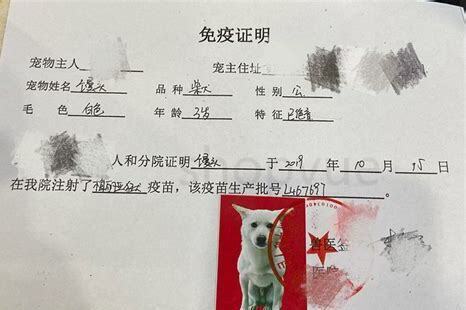 免疫证明
宠物主人 宠主住址
宠物姓名 馒头 品种 柴犬 性别 公
毛色 白色 年龄 3岁 特征 已绝育
人和分院证明 馒头 于 2019 年 10 月 15 日
在我院注射了 疫苗，该疫苗生产批号 L467697 。
兽医签
医院